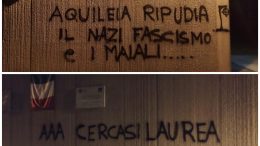 AQUILEIA RIPUDIA
IL NAZI FASCISMO
e I MAIALI.....
AAA CERCASI LAUREA